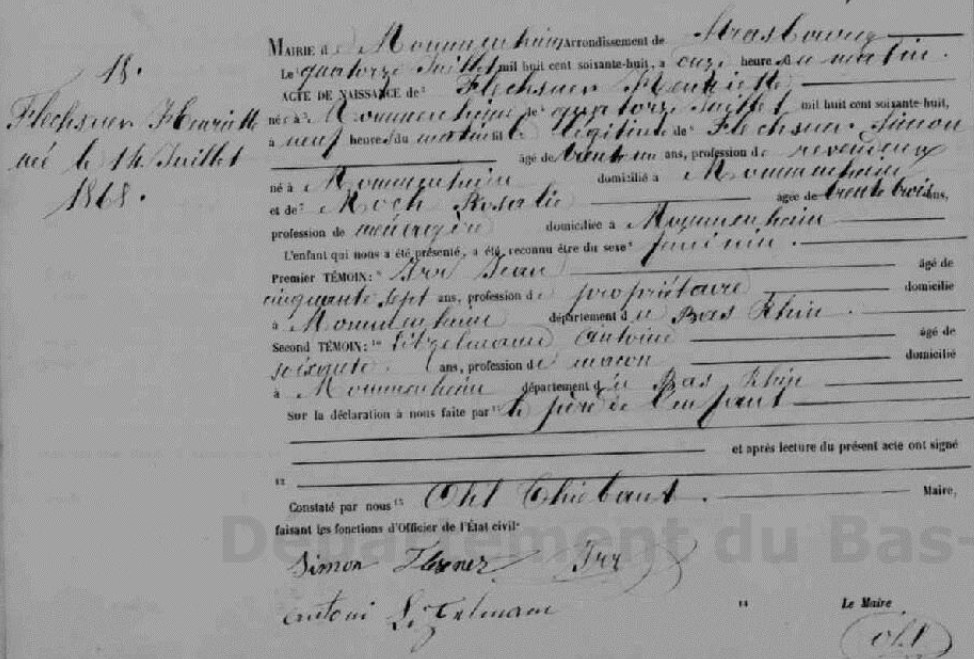 18.
Flechsner Henriette
née le 14 Juillet
1868.
MAIRIE de Mommenheim Arrondissement de Strasbourg
Le quatorze Juillet mil huit cent soixante-huit, a onze heures du matin.
ACTE DE NAISSANCE de Flechsner Henriette
née à Mommenheim le quatorze Juillet mil huit cent soixante-huit,
a neuf heures du matin fille légitime de Flechsner Simon
âgé de trente un ans, profession de revendeur
né à Mommenheim domicilié à Mommenheim
et de Moch Rosalie âgée de trente trois ans,
profession de ménagère domiciliée à Mommenheim
L'enfant qui nous a été présenté, a été reconnu être du sexe féminin.
Premier TÉMOIN: Irr Jean âgé de
cinquante sept ans, profession de propriétaire domicilié
à Mommenheim département du Bas Rhin.
Second TÉMOIN: Litzelmann Antoine âgé de
soixante ans, profession de maçon domicilié
à Mommenheim département du Bas Rhin
Sur la déclaration à nous faite par le père de l'enfant
et après lecture du présent acte ont signé
12
Constaté par nous 13 Ohl Thiébaut. Maire,
faisant les fonctions d'Officier de l'État civil.
Département du Bas-
Simon Irr
antoni
14 Le Maire
Ohl